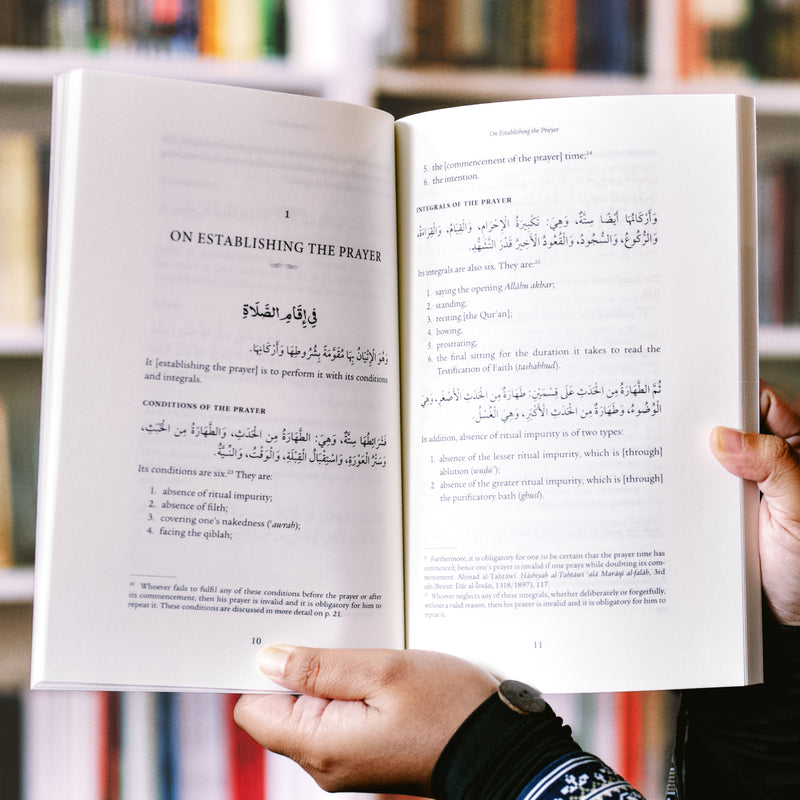 1
ON ESTABLISHING THE PRAYER
فِي إِقَامِ الصَّلَاةِ
وَهُوَ الْإِتْيَانُ بِهَا مُقَوَّمَةً بِشُرُوطِهَا وَأَرْكَانِهَا.
It [establishing the prayer] is to perform it with its conditions
and integrals.
CONDITIONS OF THE PRAYER
فَشَرَائِطُهَا سِتَّةٌ، وَهِيَ: الطَّهَارَةُ مِن الْحَدَثِ، وَالطَّهَارَةُ مِن الْخَبَثِ،
وَسَتْرُ الْعَوْرَةِ، وَاسْتِقْبَالُ الْقِبْلَةِ، وَالْوَقْتُ، وَالنِّيَّةُ.
Its conditions are six.²³ They are:
1. absence of ritual impurity;
2. absence of filth;
3. covering one's nakedness (ʿawrah);
4. facing the qiblah;
²³ Whoever fails to fulfil any of these conditions before the prayer or after
its commencement, then his prayer is invalid and it is obligatory for him to
repeat it. These conditions are discussed in more detail on p. 21.
10
On Establishing the Prayer
5. the [commencement of the prayer] time;²⁴
6. the intention.
INTEGRALS OF THE PRAYER
وَأَرْكَانُهَا أَيْضًا سِتَّةٌ، وَهِيَ: تَكْبِيرَةُ الْإِحْرَامِ، وَالْقِيَامُ، وَالْقِرَاءَةُ،
وَالرُّكُوعُ، وَالسُّجُودُ، وَالْقُعُودُ الْأَخِيرُ قَدْرَ التَّشَهُّدِ.
Its integrals are also six. They are:²⁵
1. saying the opening Allāhu akbar;
2. standing;
3. reciting [the Qurʾan];
4. bowing;
5. prostrating;
6. the final sitting for the duration it takes to read the
Testification of Faith (tashahhud).
ثُمَّ الطَّهَارَةُ مِن الْحَدَثِ عَلَى قِسْمَيْنِ: طَهَارَةٌ مِن الْحَدَثِ الْأَصْغَرِ، وَهِيَ
الْوُضُوءُ، وَطَهَارَةٌ مِن الْحَدَثِ الْأَكْبَرِ، وَهِيَ الْغُسْلُ.
In addition, absence of ritual impurity is of two types:
1. absence of the lesser ritual impurity, which is [through]
ablution (wuḍūʾ);
2. absence of the greater ritual impurity, which is [through]
the purificatory bath (ghusl).
Furthermore, it is obligatory for one to be certain that the prayer time has
commenced; hence one's prayer is invalid if one prays while doubting its com-
mencement. Aḥmad al-Ṭaḥṭāwī. Ḥāshiyah al-Ṭaḥṭāwī ʿalā Marāqī al-falāḥ, 3rd
edn (Beirut: Dār al-Īmān, 1318/1897), 117.
²⁵ Whoever neglects any of these integrals, whether deliberately or forgetfully,
without a valid reason, then his prayer is invalid and it is obligatory for him to
repeat it.
11